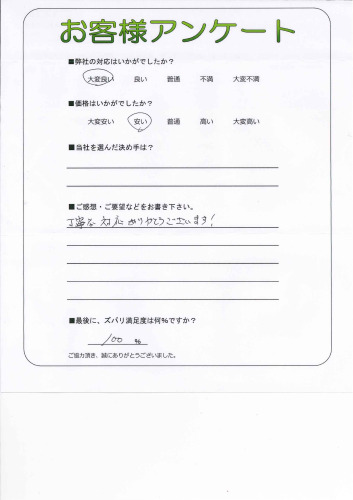 お客様アンケート
■弊社の対応はいかがでしたか？
大変良い 良い 普通 不満 大変不満
■価格はいかがでしたか？
大変安い 安い 普通 高い 大変高い
■当社を選んだ決め手は？
■ご感想・ご要望などをお書き下さい。
丁寧な対応ありがとうございます!
■最後に、ズバリ満足度は何％ですか？
100 %
ご協力頂き、誠にありがとうございました。